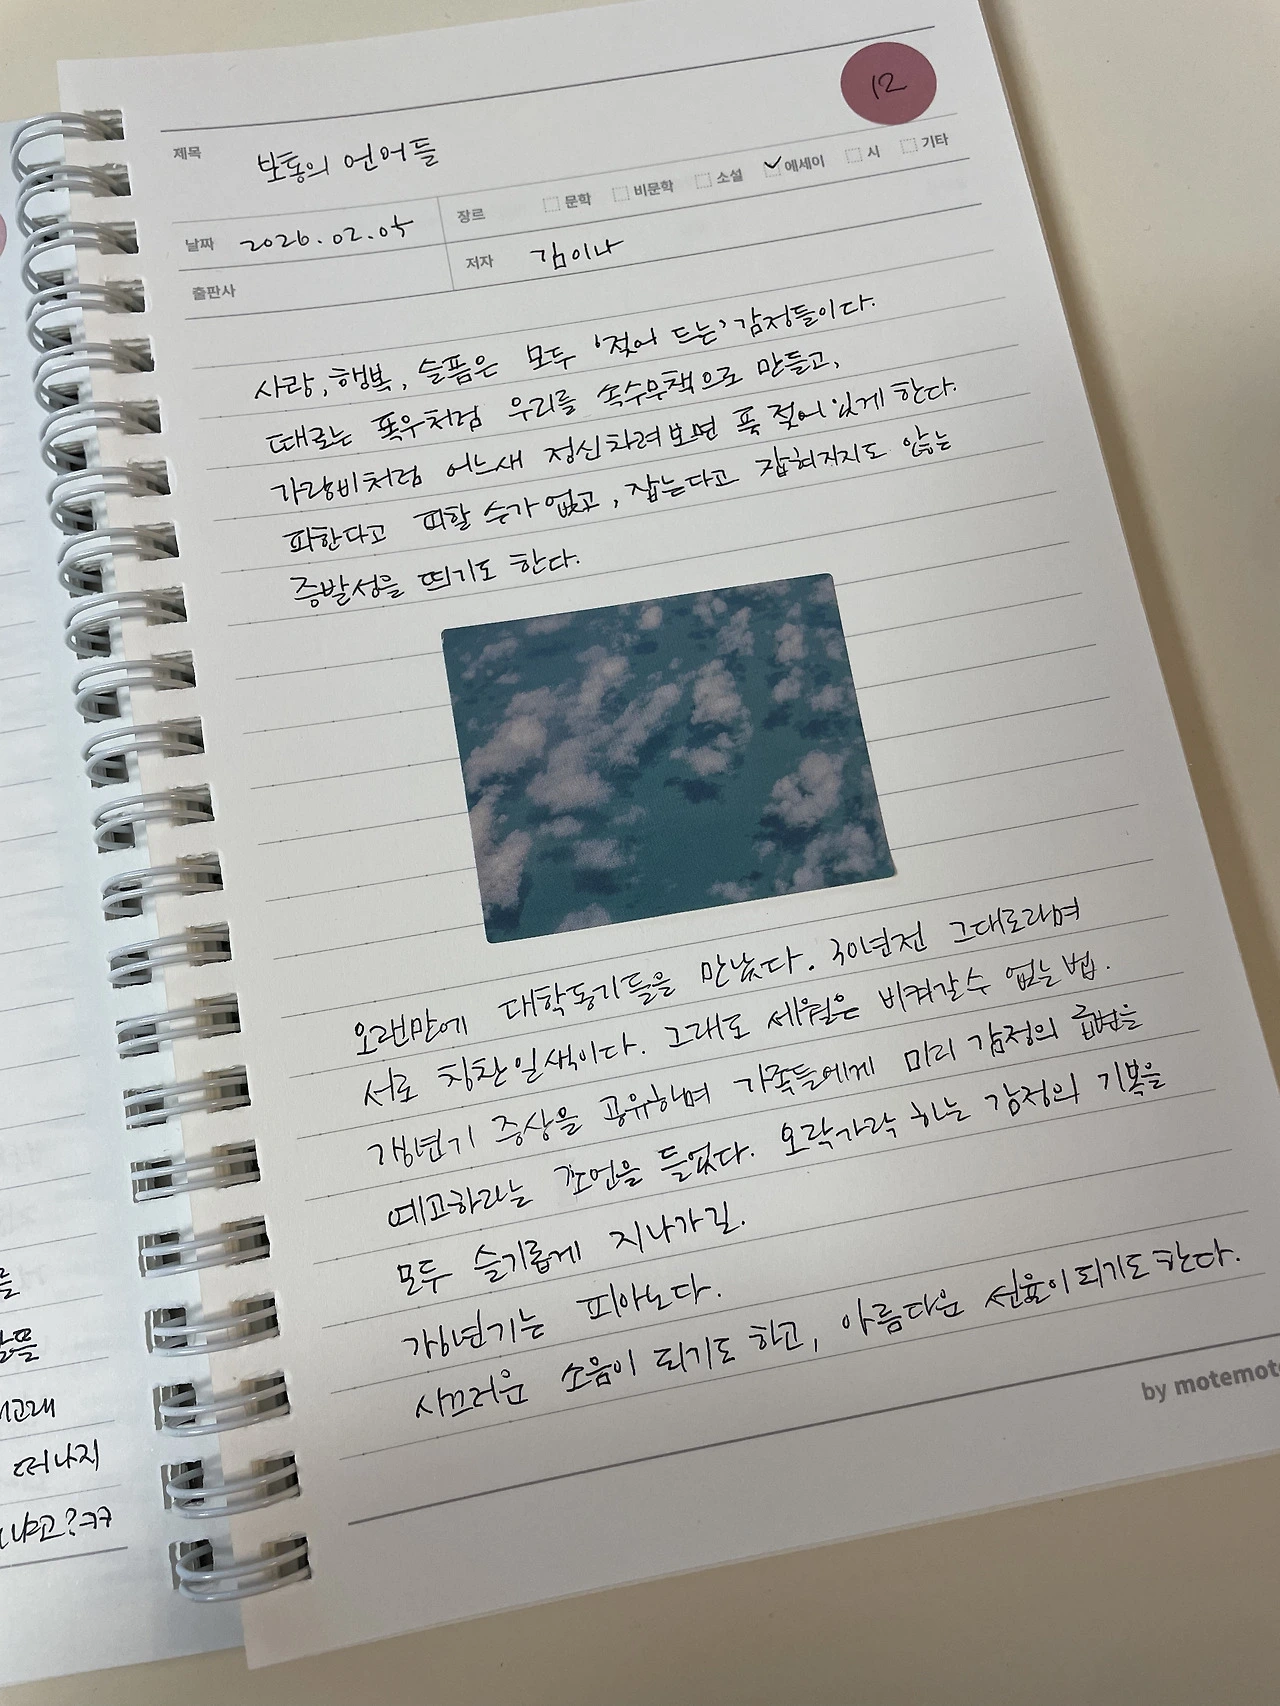 12
제목 보통의 언어들
날짜 2026.02.05 장르 문학 비문학 소설 ✓에세이 시 기타
출판사 저자 김이나
사랑, 행복, 슬픔은 모두 '젖어 드는' 감정들이다.
때로는 폭우처럼 우리를 속수무책으로 만들고,
가랑비처럼 어느새 정신차려보면 푹 젖어있게 한다.
피한다고 피할 수가 없고, 잡는다고 잡혀지지도 않는
증발성을 띄기도 한다.
오랜만에 대학동기들을 만났다. 30년전 그대로라며
서로 칭찬일색이다. 그래도 세월은 비켜갈수 없는법.
갱년기 증상을 공유하며 가족들에게 미리 감정의 급변을
예고하라는 조언을 들었다. 오락가락 하는 감정의 기복을
모두 슬기롭게 지나가길.
갱년기는 피아노다.
시끄러운 소음이 되기도 하고, 아름다운 선율이 되기도 한다.
by motemote
를
고래
떠나지
냐고?ㅋㅋ